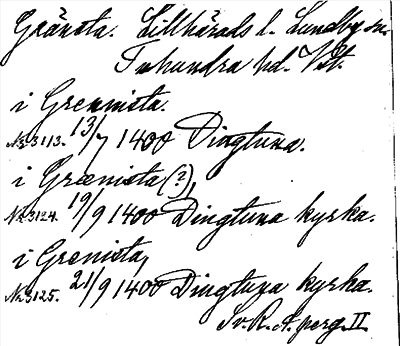 Gränsta. Lillhärads l. Lundby sn.
Tuhundra hd. Vstm.
i Grennista.
No 3113. 13/7 1400 Dingtuna.
i Grænista (?),
No 3124. 19/9 1400 Dingtuna kyrka.
i Grenista,
No 3125. 21/9 1400 Dingtuna kyrka.
Sv. R. A. perg. II